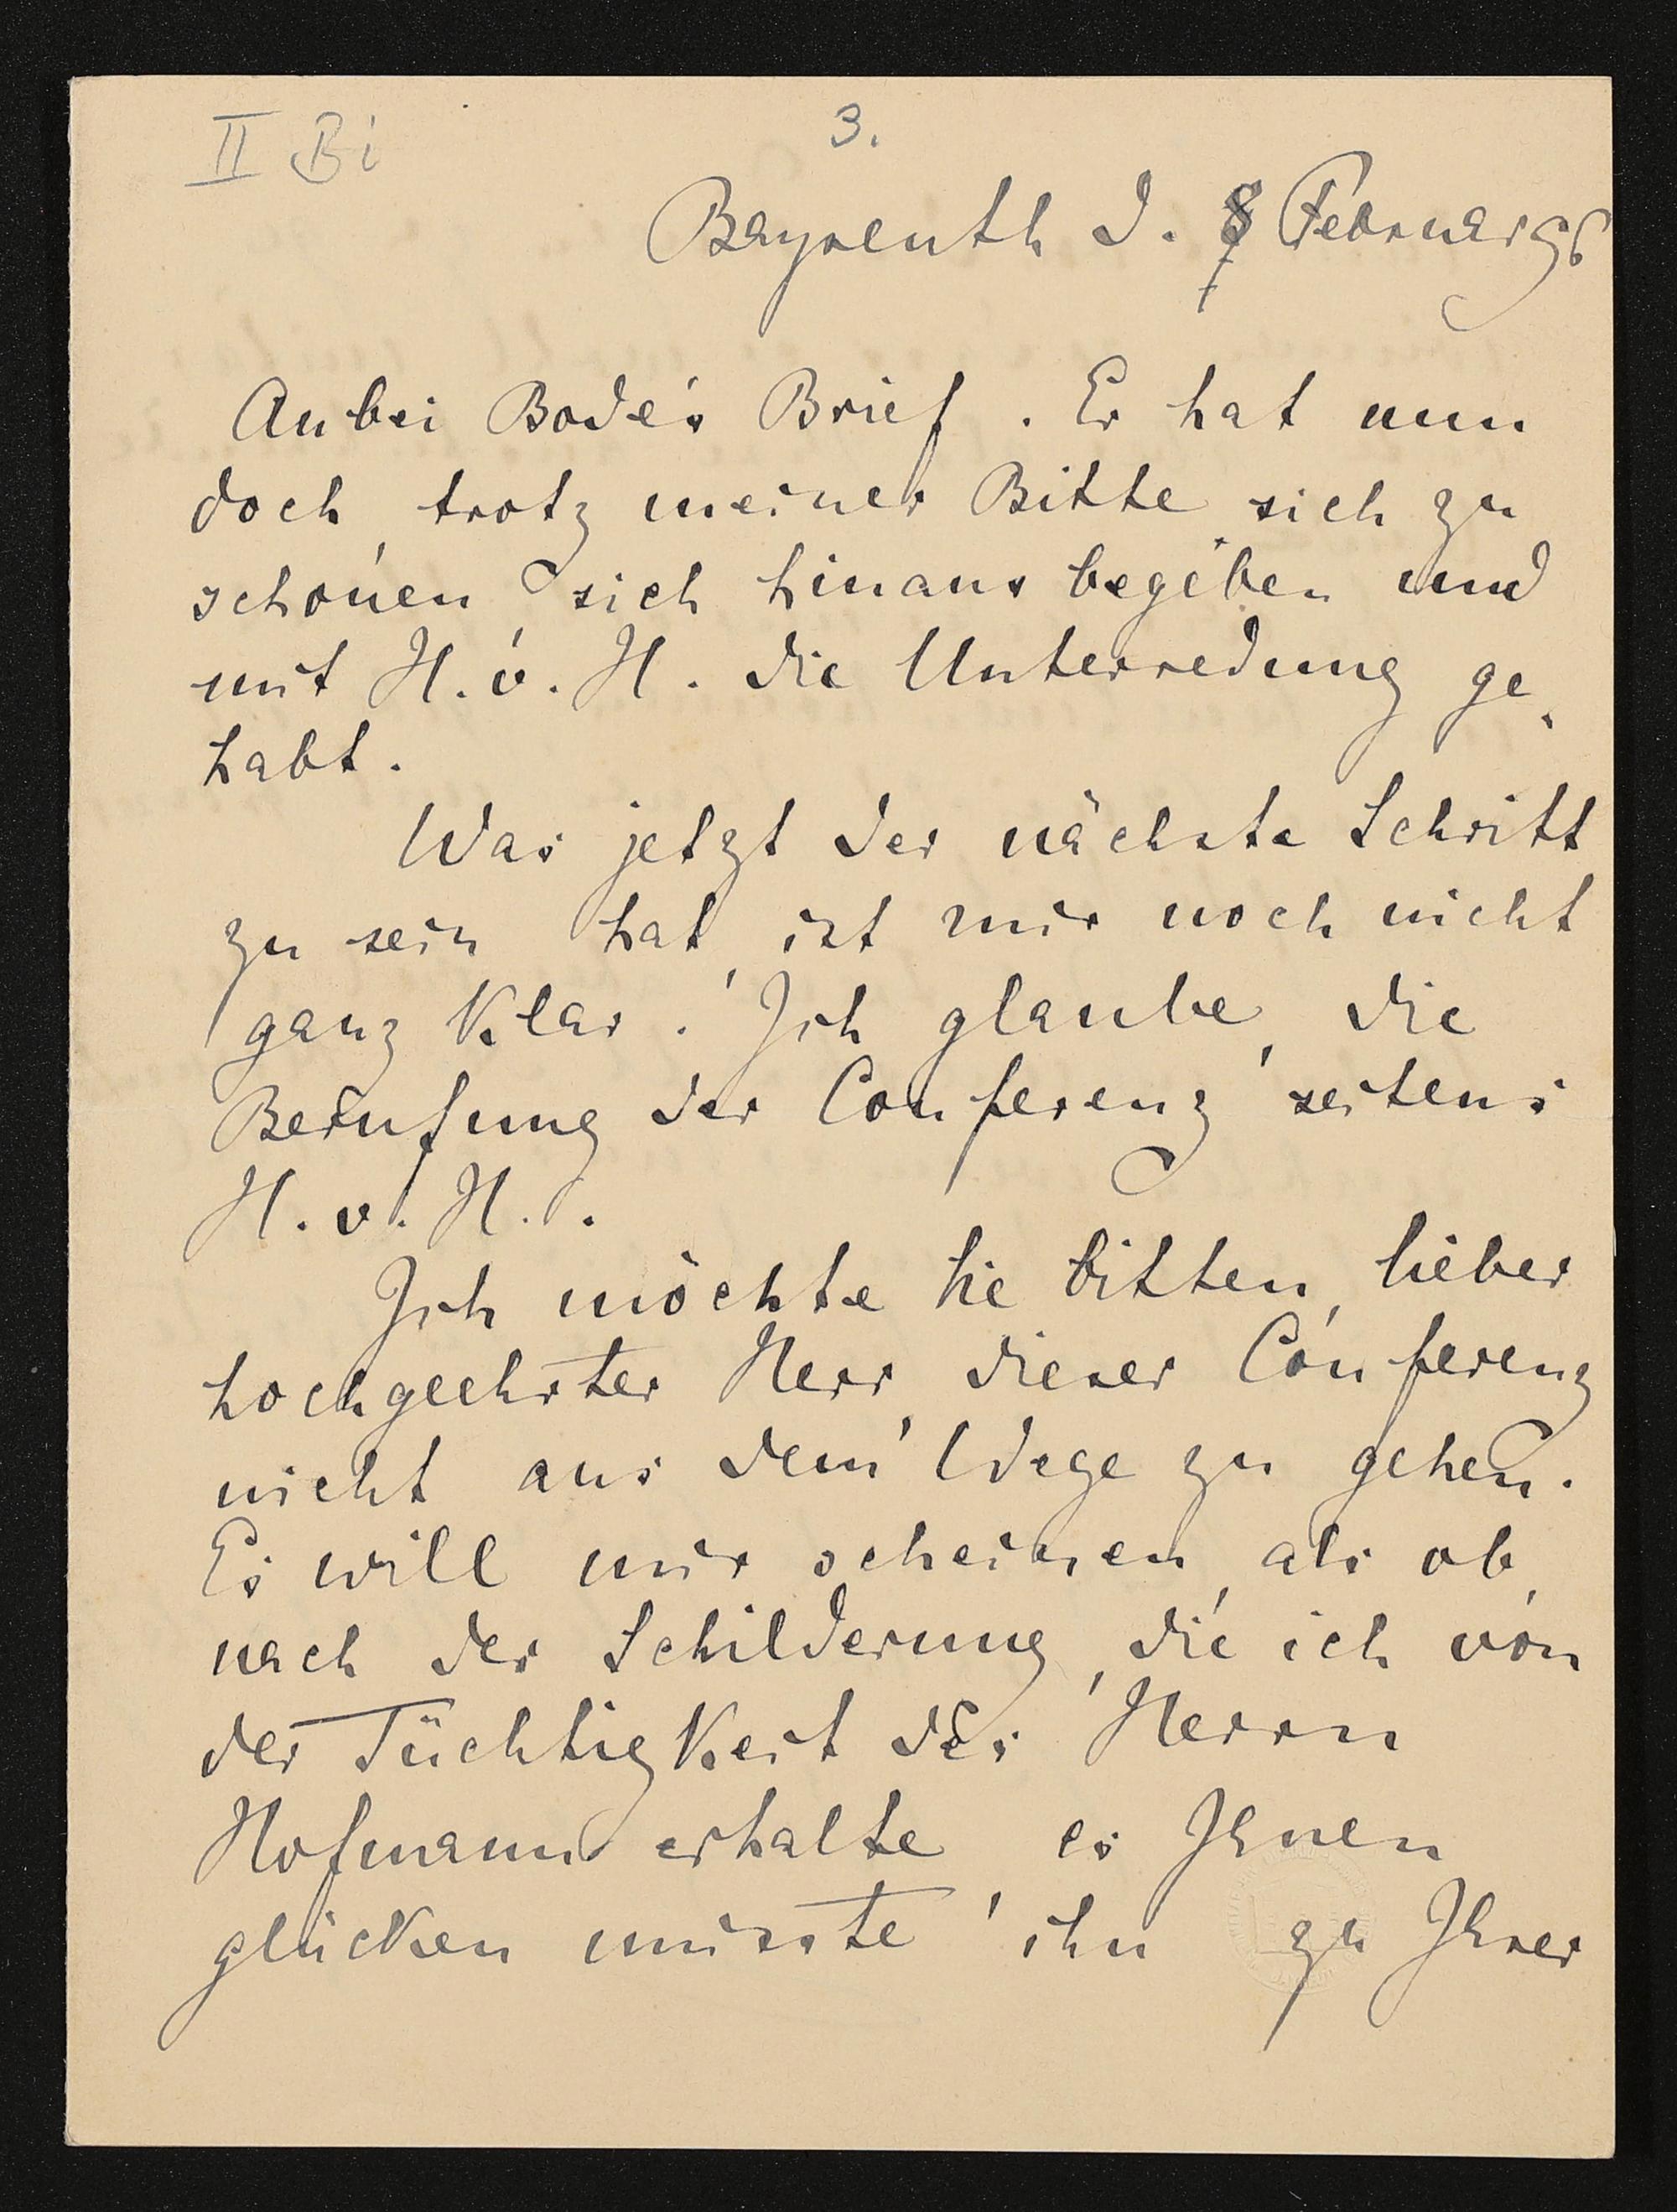 II Bi
3.
Bayreuth d. 8 Februar 96
Anbei Bode's Brief. Er hat nun
doch, trotz meiner Bitte sich zu
schonen, sich hinaus begeben und
mit H. v. H. die Unterredung ge-
habt.
Was jetzt der nächste Schritt
zu sein hat, ist mir noch nicht
ganz klar. Ich glaube, die
Berufung der Conferenz seitens
H. v. H..
Ich möchte Sie bitten, lieber
hochgeehrter Herr, dieser Conferenz
nicht aus dem Wege zu gehen.
Es will mir scheinen, als ob,
nach der Schilderung, die ich von
der Tüchtigkeit des Herrn
Hofmann erhalte, es Ihnen
glücken müsste ihn zu Ihrer